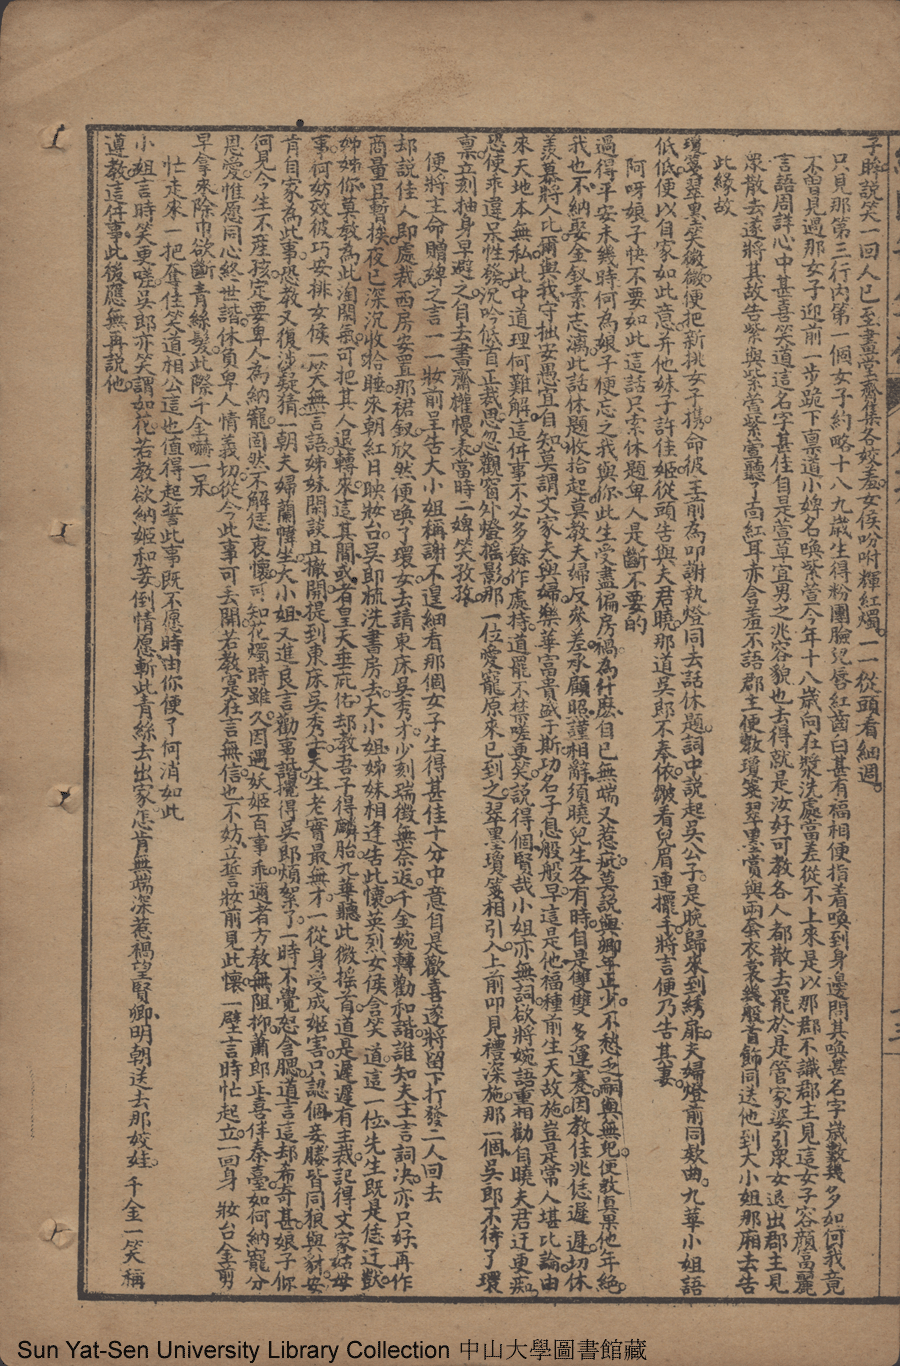 子眸說笑一回人已至畫堂齋集各姣羞女侯吩咐輝紅燭一一從頭看細週
只見那第三行內第一個女子約略十八九歲生得粉團臉兒唇紅齒白甚有福相便指着喚到身邊問其喚甚名字歲數幾多如何我竟
不曾見過那女子迎前一步跪下禀道小婢名喚紫萱今年十八歲向在漿洗處當差從不上來是以那郡不識郡主見這女子容顏富麗
言語周詳心中甚喜笑道這名字甚佳自是萱草宜男之兆容貌也去得就是汝好可教各人都散去罷於是管家婆引眾女退出郡主見
眾散去遂將其故告紫與紫萱紫萱聽了尚紅耳赤含羞不語郡主便教瓊箋翠墨賞與兩套衣裳幾般首飾同送他到大小姐那厢去告
此緣故
瓊箋翠墨笑微微便把新挑女子携命彼王前為叩謝執燈同去話休題詞中說起吳公子是晚歸來到綉扉夫婦燈前同欵曲九華小姐語
低低便以自家如此意并他妹子許佳姬從頭告與夫君曉那道吳郎不奉依皺看兒眉連擺手將言便乃告其妻
阿呀娘子快不要如此這話只索休題卑人是斷不要的
過得平安未幾時何為娘子便忘之我與你此生受盡偏房禍為什麽自已無端又惹疵莫說與卿年正少不愁乏嗣與無兒便教真果他年絕
我也不納娶金釵素志漓此話休題收拾起莫教夫婦反參差承顧照謹相辭須曉兒生各有時自是雙雙多運蹇因教佳兆恁遲遲切休
羨慕將人比爾與我守拙安愚宜自知莫謂文家夫與婦樂華富貴盛于斯功名子息般般早這是他福種前生天故施豈是常人堪比論由
來天地本無私此中道理何難解這件事不必多餘作處持道罷不禁嗟更笑說得個賢哉小姐亦無詞欲將婉語重相勸自曉夫君迂更痴
恐使乖違呆性發沉吟俛首正裁思忽觀窗外燈搖影那一位愛寵原來已到之翠墨瓊箋相引入上前叩見禮深施那一個吳郎不待了環
禀立刻抽身早避之自去書齋權慢表當時二婢笑孜孜
便將主命贈婢之言一一妝前呈告大小姐稱謝不遑細看那個女子生得甚佳十分中意自是歡喜遂將留下打發二人回去
却說佳人即處裁西房安置那裙釵欣然便喚了環女去請東床吳秀才少刻瑞徵無奈返千金婉轉勸和諧誰知夫主言詞决亦只好再作
商量且暫挨夜已深沉收拾睡來朝紅日映妝台吳郎梳洗書房去大小姐妹相逢告此懷英烈女侯含笑道這一位先生既是恁迂獃
姊姊你莫教為此淘閑氣可把其人退轉來這其間或者皇天垂庇佑却教吾子得麟胎九華聽此微搖首道是遲遲有主裁記得文家姑母
事何妨效彼巧安排女侯一笑無言語姊妹閑談且撇開提到東床吳秀士夫生老實最無才一從身受成姬害只認個妾媵皆同狼與豺安
肯自家為此事恐教又復涉疑猜一朝夫婦蘭幃坐大小姐又進良言勸事諧攪得吳郎煩絮了一時不覺怒含腮道言這却希奇甚娘子你
何見今生不産孩定要卑人為納寵罔然不解恁衷懷可知花燭時雖久因遇妖姬百事乖適者方敖無阻抑蕭郎正喜伴秦臺如何納寵分
恩愛惟愿同心終世諧休負卑人情義切從今此事可丟開若教寔在言無信也不妨立誓妝前見此懷一壁言時忙起立一回身妝台金剪
早拿來除巾欲斷青絲髮此際千金嚇一呆
忙走來一把奪住笑道相公這也值得起誓此事既不愿時由你便了何消如此
小姐言時笑更嗟吳郎亦笑謂如花若教欲納姬和妾倒情愿斬此青絲去出家怎肯無端深惹禍望賢卿明朝送去那姣娃千金一笑稱
遵教這件事此後應無再說他
Sun Yat-Sen University Library Collection 中山大學圖書館藏